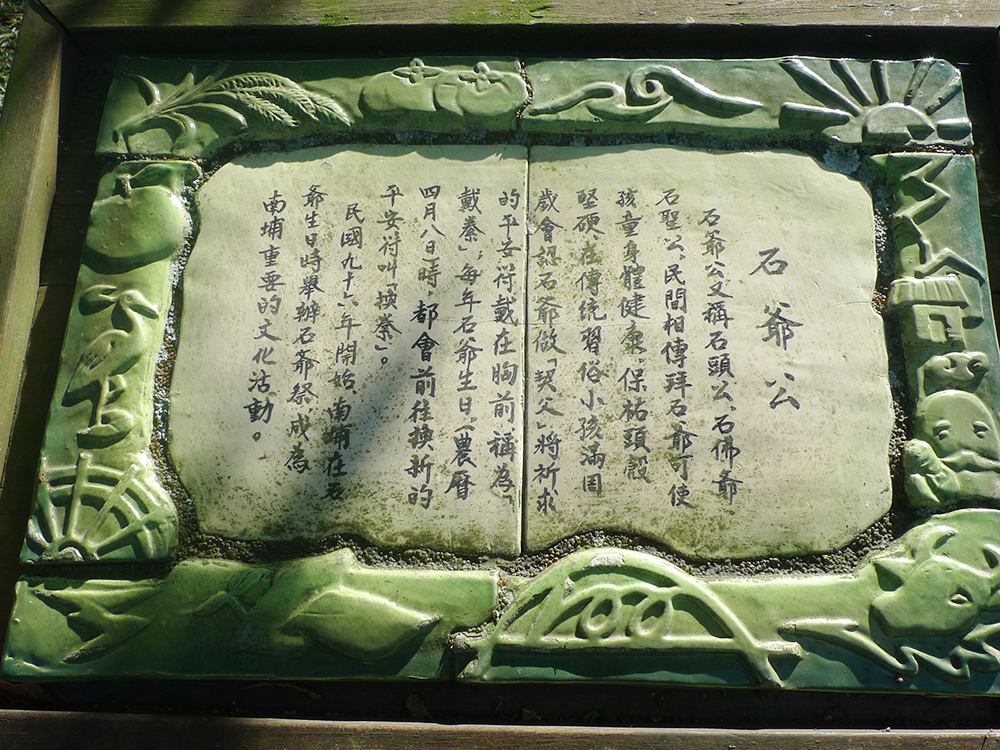 石爺公
石爺公又稱石頭公、石佛爺、
石聖公,民間相傳拜石爺可使
孩童身體健康、保祐頭殼
堅硬。在傳統習俗小孩滿周
歲會認石爺做「契父」將祈求
的平安符戴在胸前稱為「
戴絭」;每年石爺生日(農曆
四月八日)時,都會前往換新的
平安符叫「換絭」。
民國九十六年開始,南埔在石
爺生日時舉辦石爺祭,成為
南埔重要的文化活動。